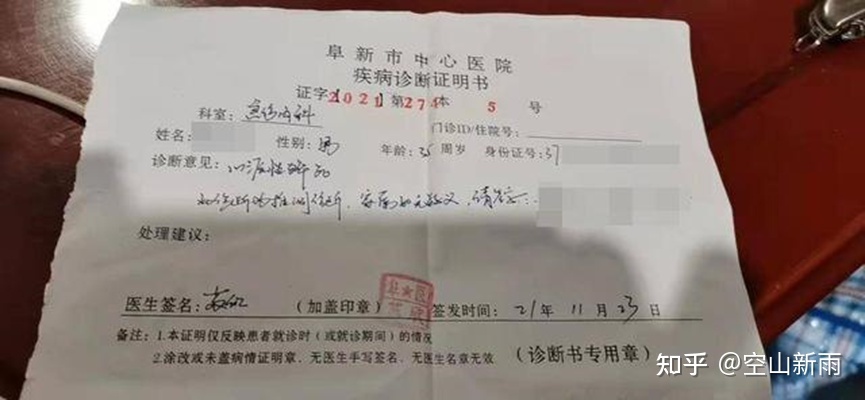 阜新市中心医院
疾病诊断证明书
证字【2021】第274本 5 号
科室：急诊内科
门诊ID/住院号：
姓名： 性别：男 年龄：35 周岁 身份证号：37
诊断意见：心源性猝死
此诊断为推测诊断，家属如无疑义，请签字：
处理建议：
医生签名： （加盖印章） 签发时间：21年 11 月 23 日
备注：1.本证明仅反映患者就诊时（或就诊期间）的情况
2.涂改或未盖病情证明章、无医生手写签名、无医生名章无效 （诊断书专用章）
知乎 @空山新雨